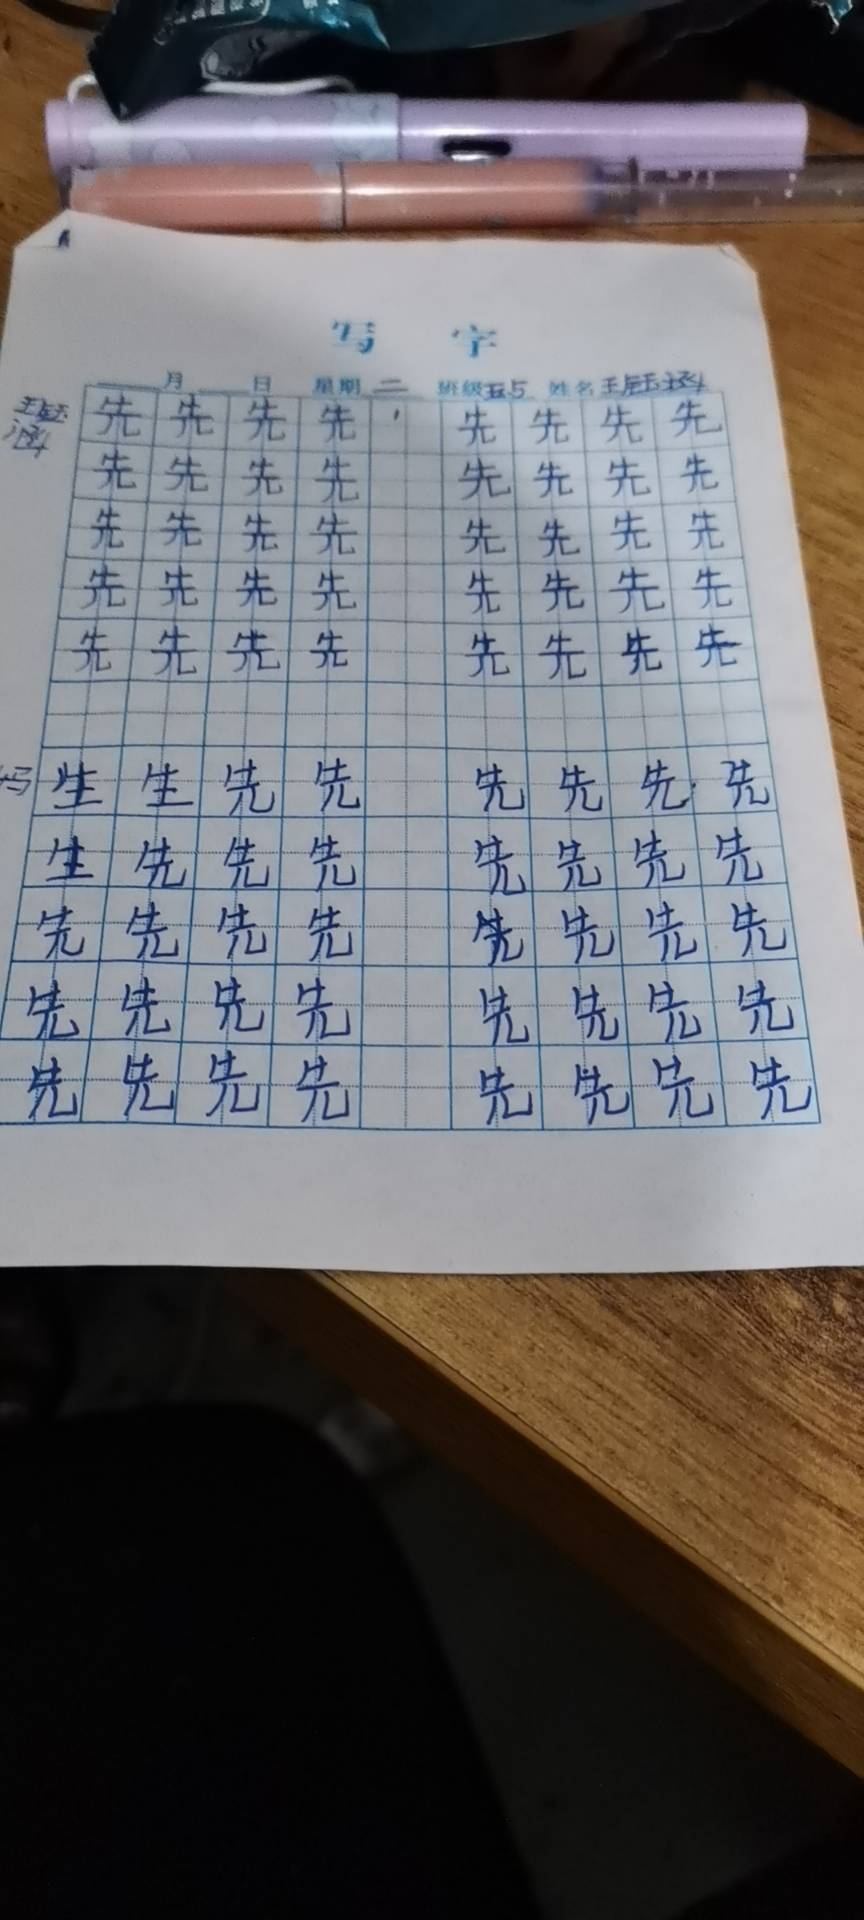 写 字
月 日 星期 二 班级 五5 姓名 王钰涵
王钰
涵
先 先 先 先 先 先 先 先
先 先 先 先 先 先 先 先
先 先 先 先 先 先 先 先
先 先 先 先 先 先 先 先
先 先 先 先 先 先 先 先
妈 生 生 先 先 先 先 先 先
生 先 先 先 先 先 先 先
先 先 先 先 先 先 先 先
先 先 先 先 先 先 先 先
先 先 先 先 先 先 先 先